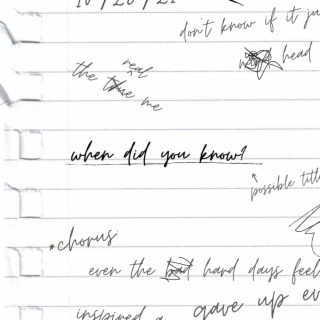 don't know if it ju
head
real
the true me
when did you know?
possible titl
*chorus
even the bad hard days feel
inspired a
gave up ev